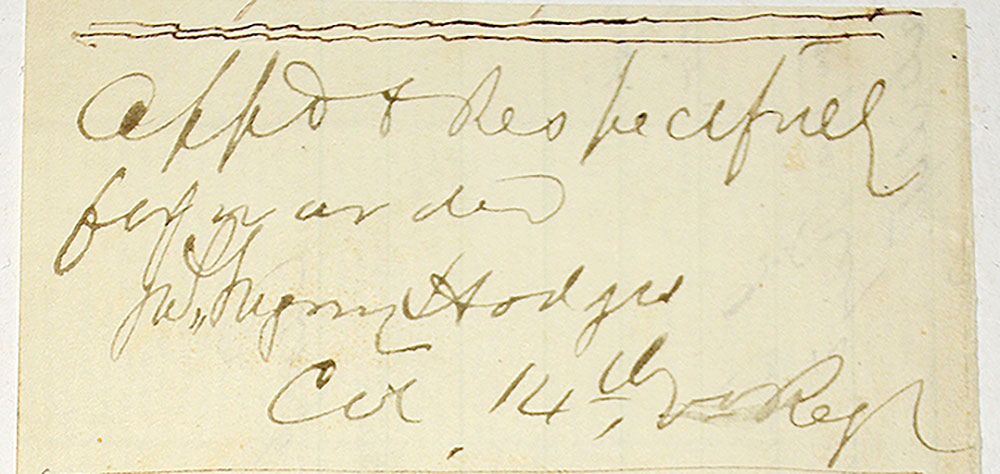 Appd & Respectfully
forwarded
Jas. Gregory Hodges
Col, 14th, Va Regt